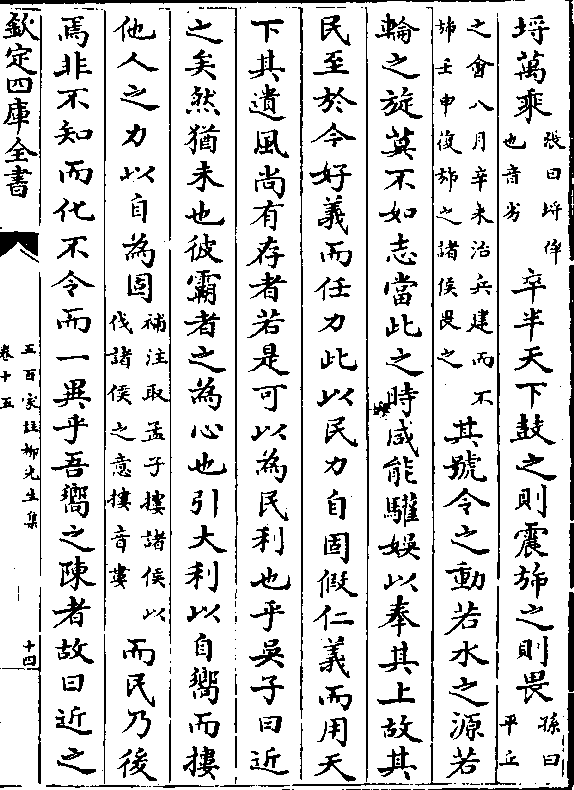 埒萬乘張曰埒侔也音劣卒半天下鼓之則震旆之則畏孫曰平丘
之會八月辛未治兵建而不旆壬申復旆之諸侯畏之其號令之動若水之源若
輪之旋莫不如志當此之時咸能驩娛以奉其上故其
民至於今好義而任力此以民力自固假仁義而用天
下其遺風尚有存者若是可以為民利也乎吳子曰近
之矣然猶未也彼霸者之為心也引大利以自嚮而摟
他人之力以自為固補注取孟子摟諸侯以伐諸侯之意摟音婁而民乃後
焉非不知而化不令而一異乎吾嚮之陳者故曰近之
欽定四庫全書
五百家註柳先生集
卷十五
十四